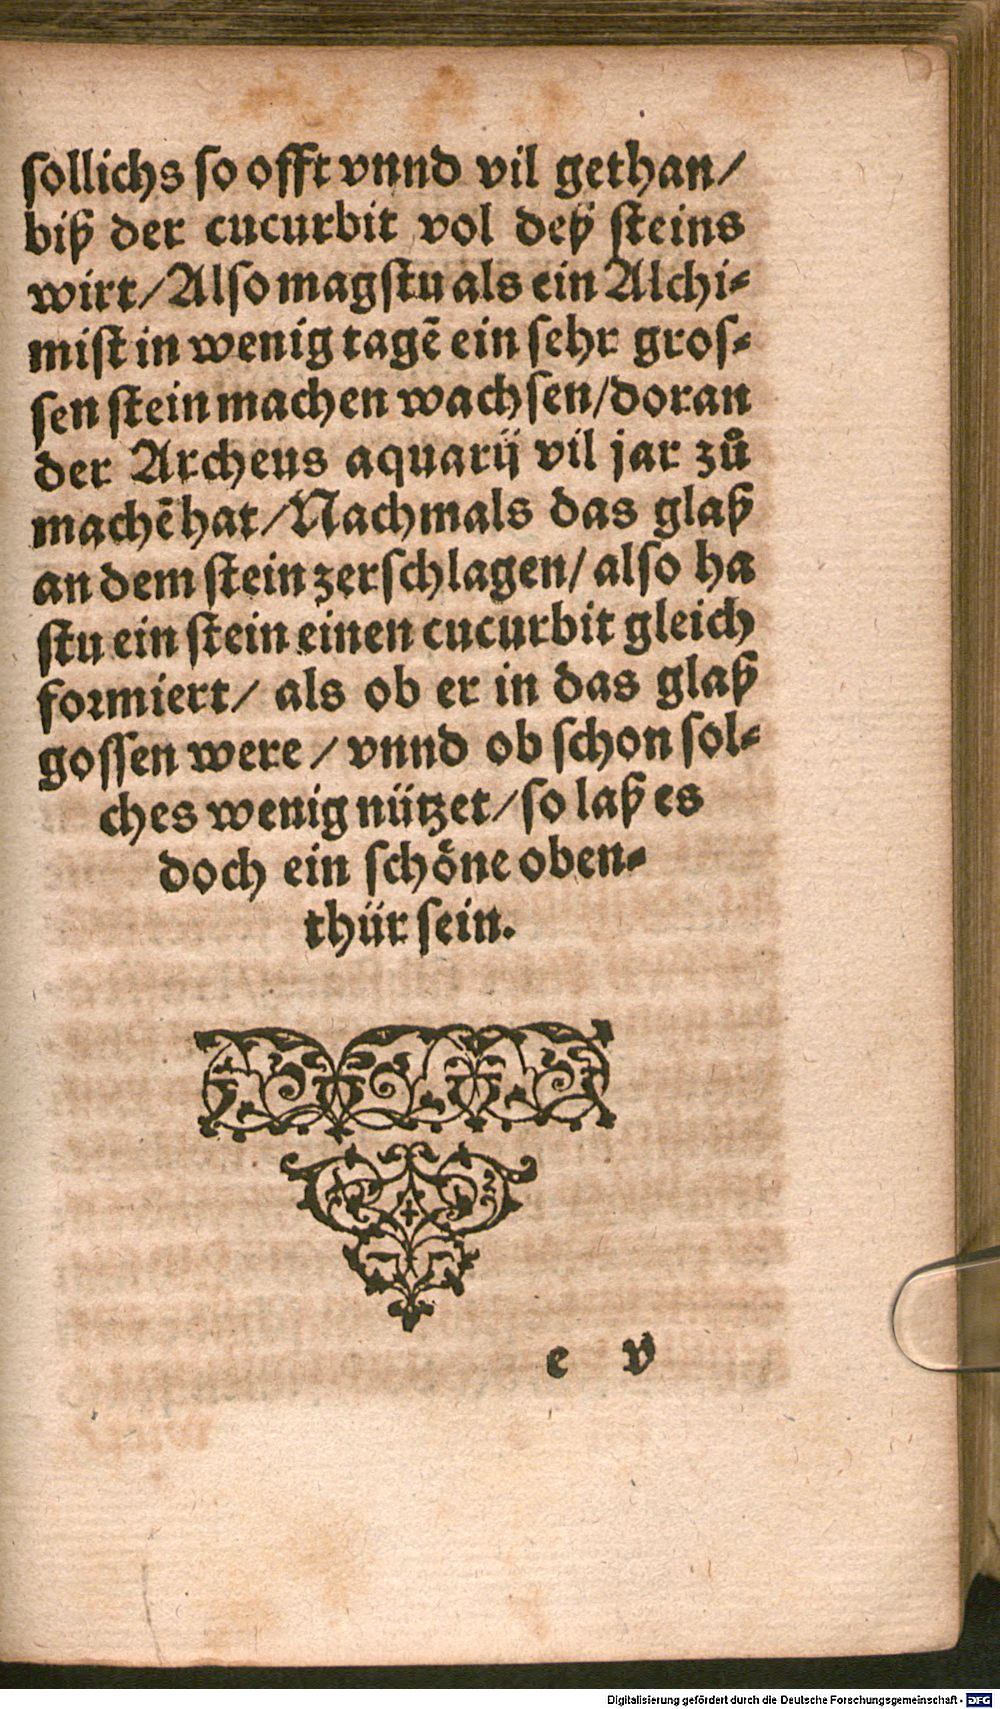 sollichs so offt vnnd vil gethan/
biß der cucurbit vol deß steins
wirt/Also magstu als ein Alchi-
mist in wenig tagẽ ein sehr gros-
sen stein machen wachsen/doran
der Archeus aquarij vil jar zů
machẽ hat/Nachmals das glaß
an dem stein zerschlagen/also ha
stu ein stein einen cucurbit gleich
formiert/ als ob er in das glaß
gossen were/vnnd ob schon sol-
ches wenig nützet/so laß es
doch ein schöne oben-
thür sein.
e v
Digitalisierung gefördert durch die Deutsche Forschungsgemeinschaft - DFG